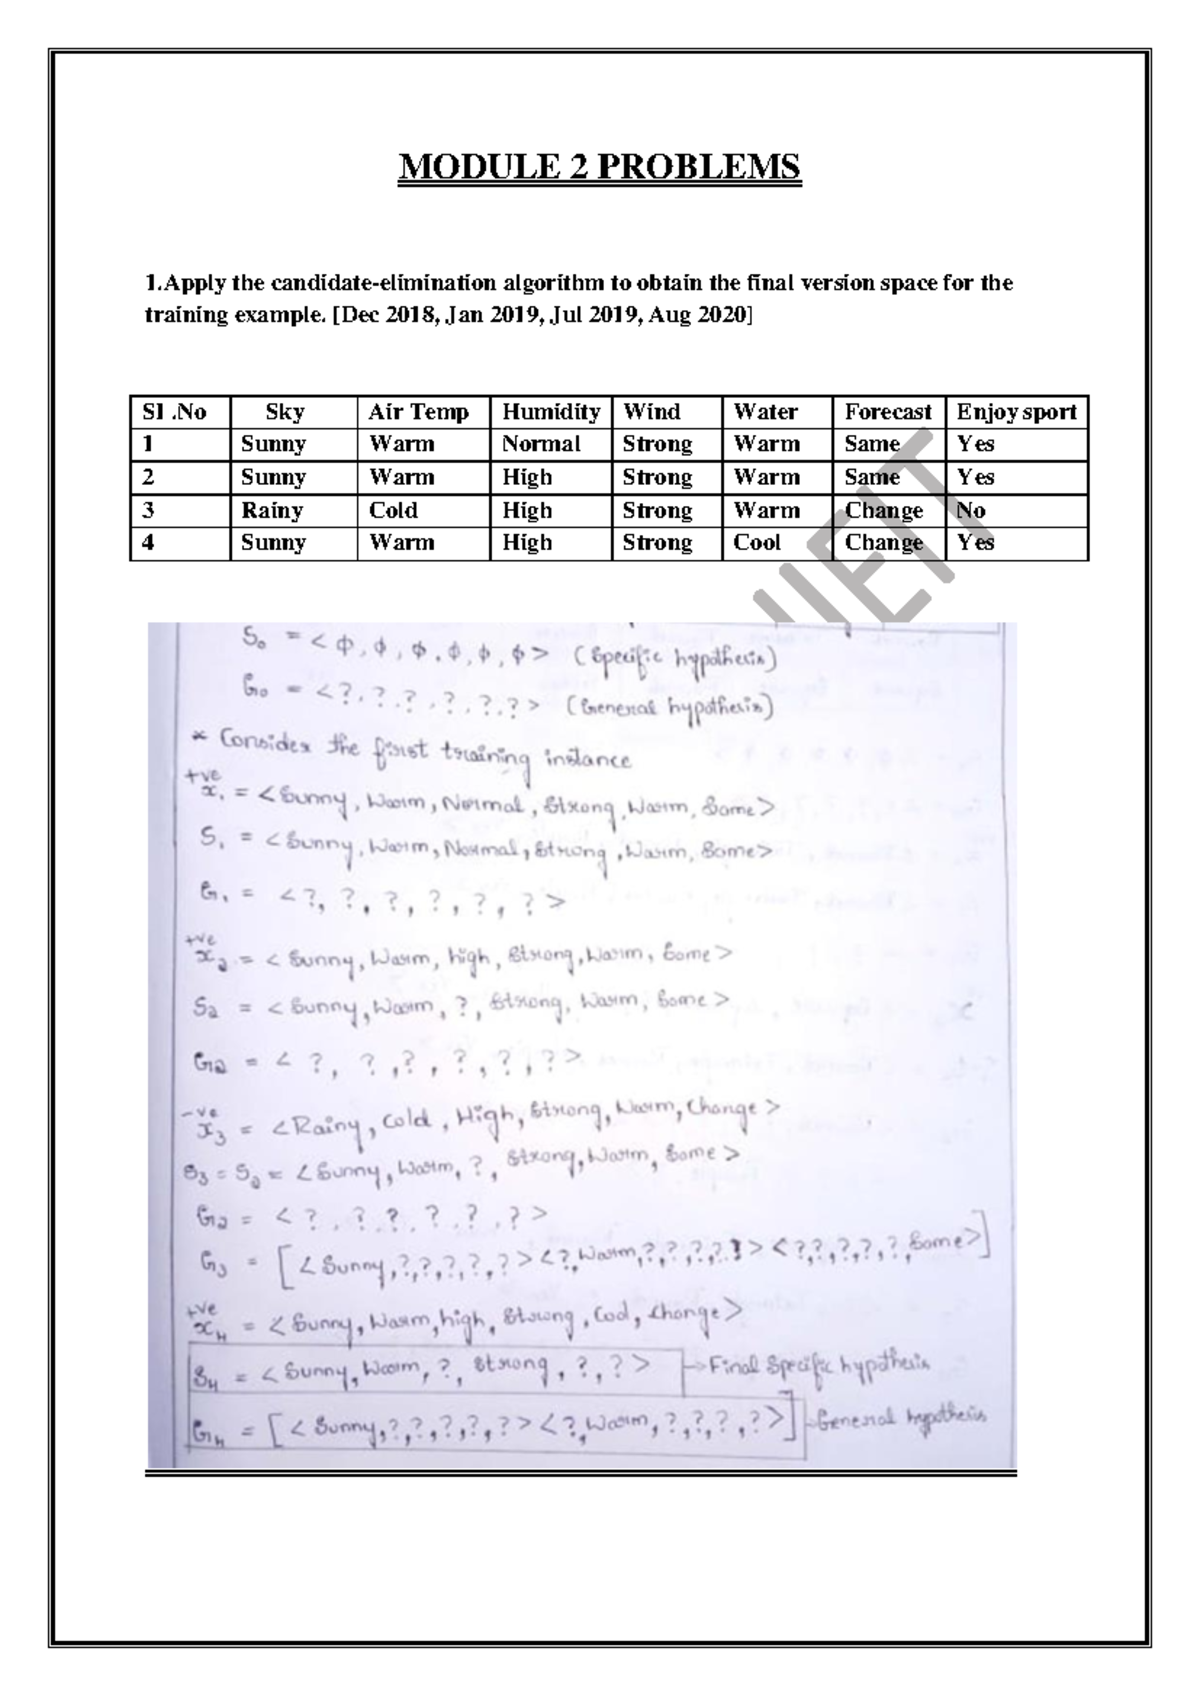 MODULE 2 PROBLEMS
1.Apply the candidate-elimination algorithm to obtain the final version space for the
training example. [Dec 2018, Jan 2019, Jul 2019, Aug 2020]
Sl .No Sky Air Temp Humidity Wind Water Forecast Enjoy sport
1 Sunny Warm Normal Strong Warm Same Yes
2 Sunny Warm High Strong Warm Same Yes
3 Rainy Cold High Strong Warm Change No
4 Sunny Warm High Strong Cool Change Yes
S₀ = < ϕ, ϕ, ϕ, ϕ, ϕ, ϕ > (Specific hypothesis)
G₀ = < ?, ?, ?, ?, ?, ? > (General hypothesis)
* Consider the first training instance
+ve
x₁ = <Sunny, Warm, Normal, Strong, Warm, Same>
S₁ = <Sunny, Warm, Normal, Strong, Warm, Same>
G₁ = <?, ?, ?, ?, ?, ?>
+ve
x₂ = <Sunny, Warm, high, Strong, Warm, Same>
S₂ = <Sunny, Warm, ?, Strong, Warm, Same>
G₂ = < ?, ?, ?, ?, ?, ?>
-ve
x₃ = <Rainy, Cold, High, Strong, Warm, Change>
S₃ = S₂ = <Sunny, Warm, ?, Strong, Warm, Same>
G₂ = < ?, ?, ?, ?, ?, ?>
G₃ = [<Sunny,?,?,?,?,?> <?,Warm,?,?,?,?> <?,?,?,?,?,Same>]
+ve
x₄ = <Sunny, Warm, high, Strong, Cool, Change>
S₄ = <Sunny, Warm, ?, Strong, ?, ?> → Final Specific hypothesis
G₄ = [<Sunny,?,?,?,?,?> <?,Warm,?,?,?,?>] → General hypothesis